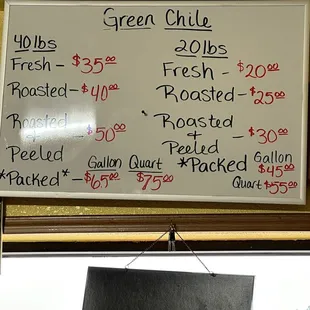 Green Chile
40 lbs
Fresh - $35.00
Roasted - $40.00
Roasted
+ - $50.00
Peeled
Gallon Quart
*Packed* - $65.00 $75.00
20 lbs
Fresh - $20.00
Roasted - $25.00
Roasted
+ - $30.00
Peeled
*Packed Gallon
$45.00
Quart $55.00